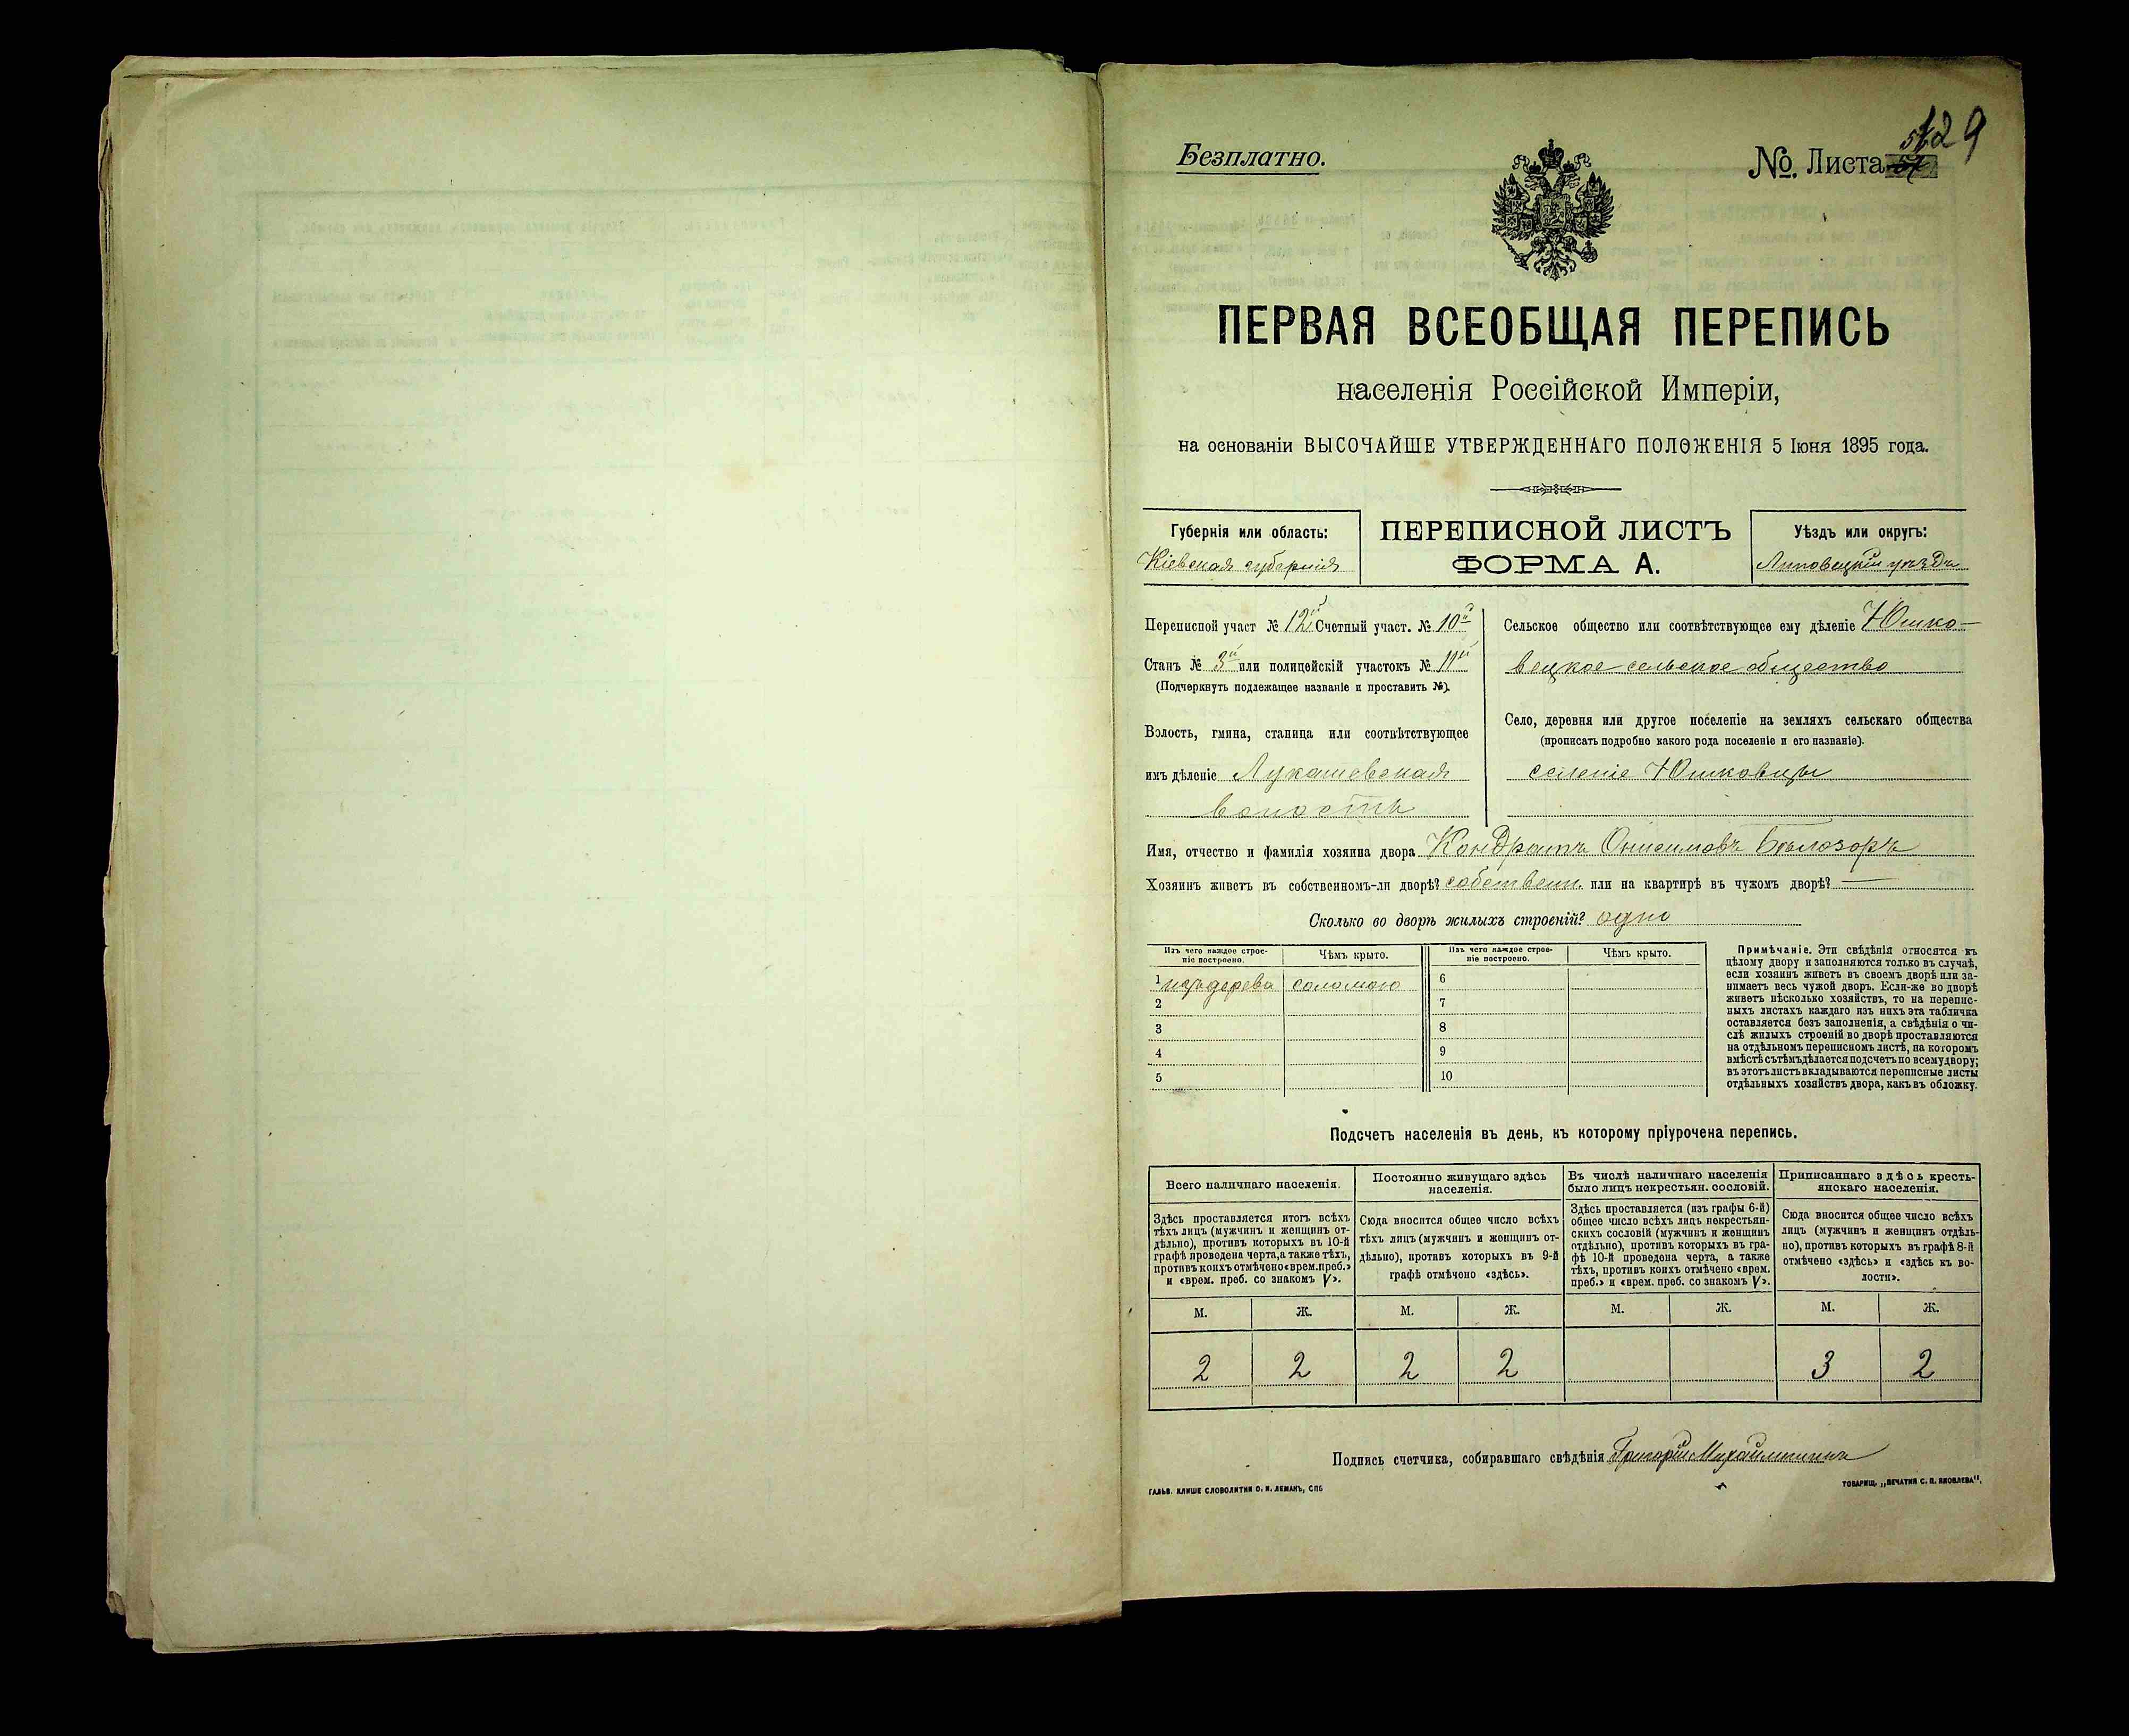 Безплатно.
№. Листа
129
ПЕРВАЯ ВСЕОБЩАЯ ПЕРЕПИСЬ
населенія Россійской Имперіи,
на основаніи ВЫСОЧАЙШЕ УТВЕРЖДЕННАГО ПОЛОЖЕНІЯ 5 Іюня 1895 года.
Губернія или область:
Кіевская губернія
ПЕРЕПИСНОЙ ЛИСТЪ
ФОРМА А.
Уѣздъ или округъ:
Липовецкій уѣздъ
Переписной участ № 12й Счетный участ. № 10й
Станъ № 3й или полицейскій участокъ № 11й
(Подчеркнуть подлежащее названіе и проставить №).
Волость, гмина, станица или соотвѣтствующее
имъ дѣленіе Лукашевская
волость
Сельское общество или соотвѣтствующее ему дѣленіе Юшко-
вецкое сельское общество
Село, деревня или другое поселеніе на земляхъ сельскаго общества
(прописать подробно какого рода поселеніе и его названіе).
селеніе Юшковцы
Имя, отчество и фамилія хозяина двора Кондратъ Онисимовъ Бѣлозоръ
Хозяинъ живетъ въ собственномъ-ли дворѣ? собственн. или на квартирѣ въ чужомъ дворѣ? —
Сколько во дворѣ жилыхъ строеній? одно
Изъ чего каждое строе-
ніе построено.
Чѣмъ крыто.
Изъ чего каждое строе-
ніе построено.
Чѣмъ крыто.
1 изъ дерева соломою 6
2 7
3 8
4 9
5 10
Примѣчаніе. Эти свѣдѣнія относятся къ
цѣлому двору и заполняются только въ случаѣ,
если хозяинъ живетъ въ своемъ дворѣ или за-
нимаетъ весь чужой дворъ. Если-же во дворѣ
живетъ нѣсколько хозяйствъ, то на перепис-
ныхъ листахъ каждаго изъ нихъ эта табличка
оставляется безъ заполненія, а свѣдѣнія о чи-
слѣ жилыхъ строеній во дворѣ проставляются
на отдѣльномъ переписномъ листѣ, на которомъ
вмѣстѣ съ тѣмъ дѣлается подсчетъ по всему двору;
въ этотъ листъ вкладываются переписные листы
отдѣльныхъ хозяйствъ двора, какъ въ обложку.
Подсчетъ населенія въ день, къ которому пріурочена перепись.
Всего наличнаго населенія.
Здѣсь проставляется итогъ всѣхъ
тѣхъ лицъ (мужчинъ и женщинъ от-
дѣльно), противъ которыхъ въ 10-й
графѣ проведена черта, а также тѣхъ,
противъ коихъ отмѣчено «врем. преб.»
и «врем. преб. со знакомъ V».
Постоянно живущаго здѣсь
населенія.
Сюда вносится общее число всѣхъ
тѣхъ лицъ (мужчинъ и женщинъ от-
дѣльно), противъ которыхъ въ 9-й
графѣ отмѣчено «здѣсь».
Въ числѣ наличнаго населенія
было лицъ некрестьян. сословій.
Здѣсь проставляется (изъ графы 6-й)
общее число всѣхъ лицъ некрестьян-
скихъ сословій (мужчинъ и женщинъ
отдѣльно), противъ которыхъ въ гра-
фѣ 10-й проведена черта, а также
тѣхъ, противъ коихъ отмѣчено «врем.
преб.» и «врем. преб. со знакомъ V».
Приписаннаго здѣсь кресть-
янскаго населенія.
Сюда вносится общее число всѣхъ
лицъ (мужчинъ и женщинъ отдѣль-
но), противъ которыхъ въ графѣ 8-й
отмѣчено «здѣсь» и «здѣсь къ во-
лости».
М. Ж. М. Ж. М. Ж. М. Ж.
2 2 2 2 3 2
Подпись счетчика, собиравшаго свѣдѣнія Григорій
ГАЛЬВ. КЛИШЕ СЛОВОЛИТНИ О. И. ЛЕМАНЪ, СПБ
ТОВАРИЩ. „ПЕЧАТНЯ С. П. ЯКОВЛЕВА".